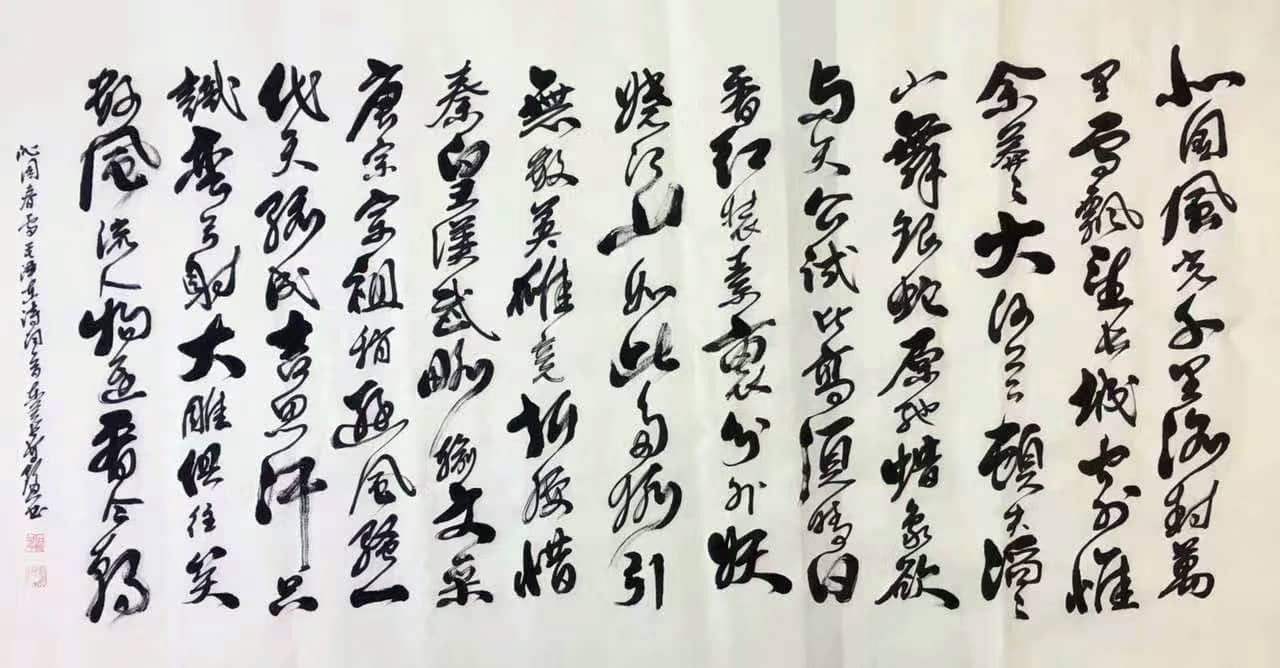 北国風光千里冰封萬
里雪飘望长城内外惟
余莽〻大河上下頓失滔〻
山舞银蛇原驰蜡象欲
与天公试比高须晴日
看红装素裹分外妖
娆江山如此多娇引
無数英雄竞折腰惜
秦皇漢武略输文采
唐宗宋祖稍逊風骚一
代天骄成吉思汗只
識弯弓射大雕俱往矣
数風流人物还看今朝
沁園春雪毛泽东诗词书